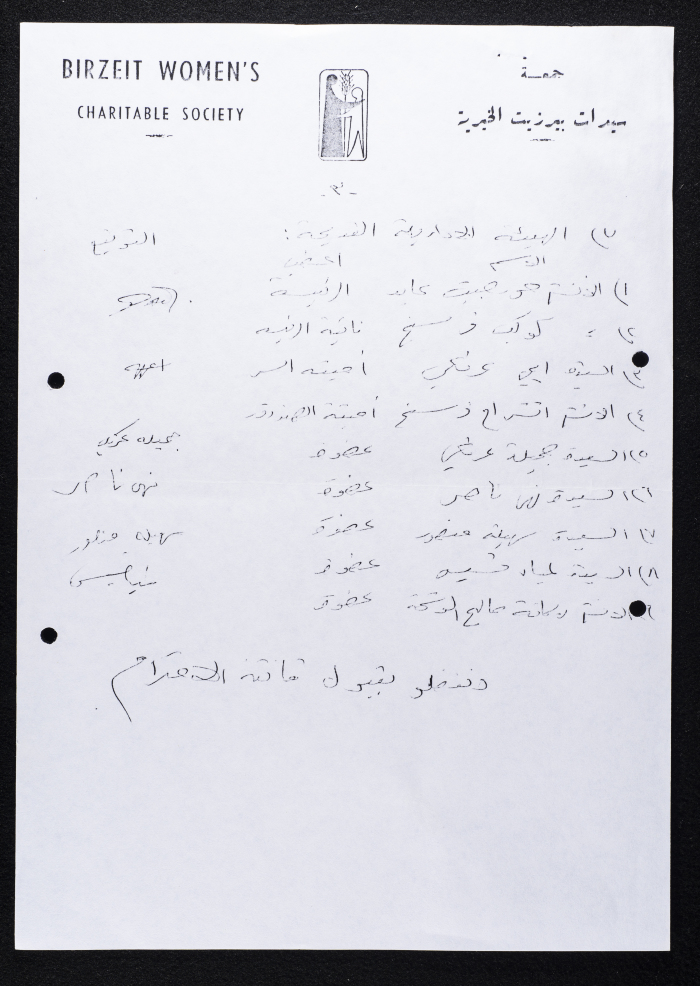 BIRZEIT WOMEN'S
CHARITABLE SOCIETY
جمعية
سيدات بيرزيت الخيرية
-٣-
٧) الهيئة الادارية القديمة: التوقيع
الاسم
١) الآنسة عايد الرئيسة
٢) " كوكب نائبة الرئيسة
٣) السيدة عرنكي أمينة السر
٤) الآنسة انشراح أمينة الصندوق
٥) السيدة جميلة عرنكي عضوة جميله عرنكي
٦) السيدة نهى ناصر عضوة نهى ناصر
٧) السيدة سهيلة منصور عضوة سهيله منصور
٨) السيدة لمياء عضوة
٩) الآنسة صالح عضوة
وتفضلو بقبول فائق الاحترام